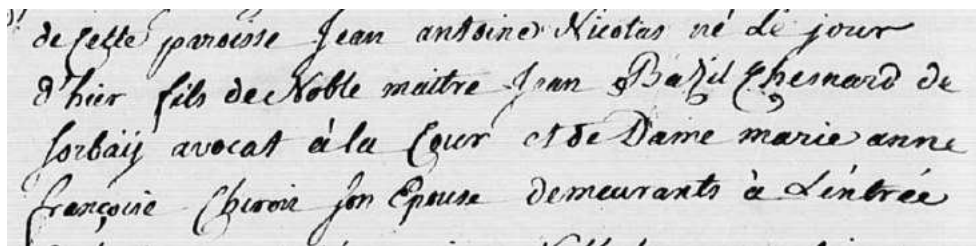 de cette paroisse Jean antoine Nicolas né Le jour
d'hier fils de Noble maitre Jean Bazil Chesnard de
sorbaÿ avocat à la Cour et de Dame marie anne
françoise Chiroir son Epouse demeurants à L'éntrée